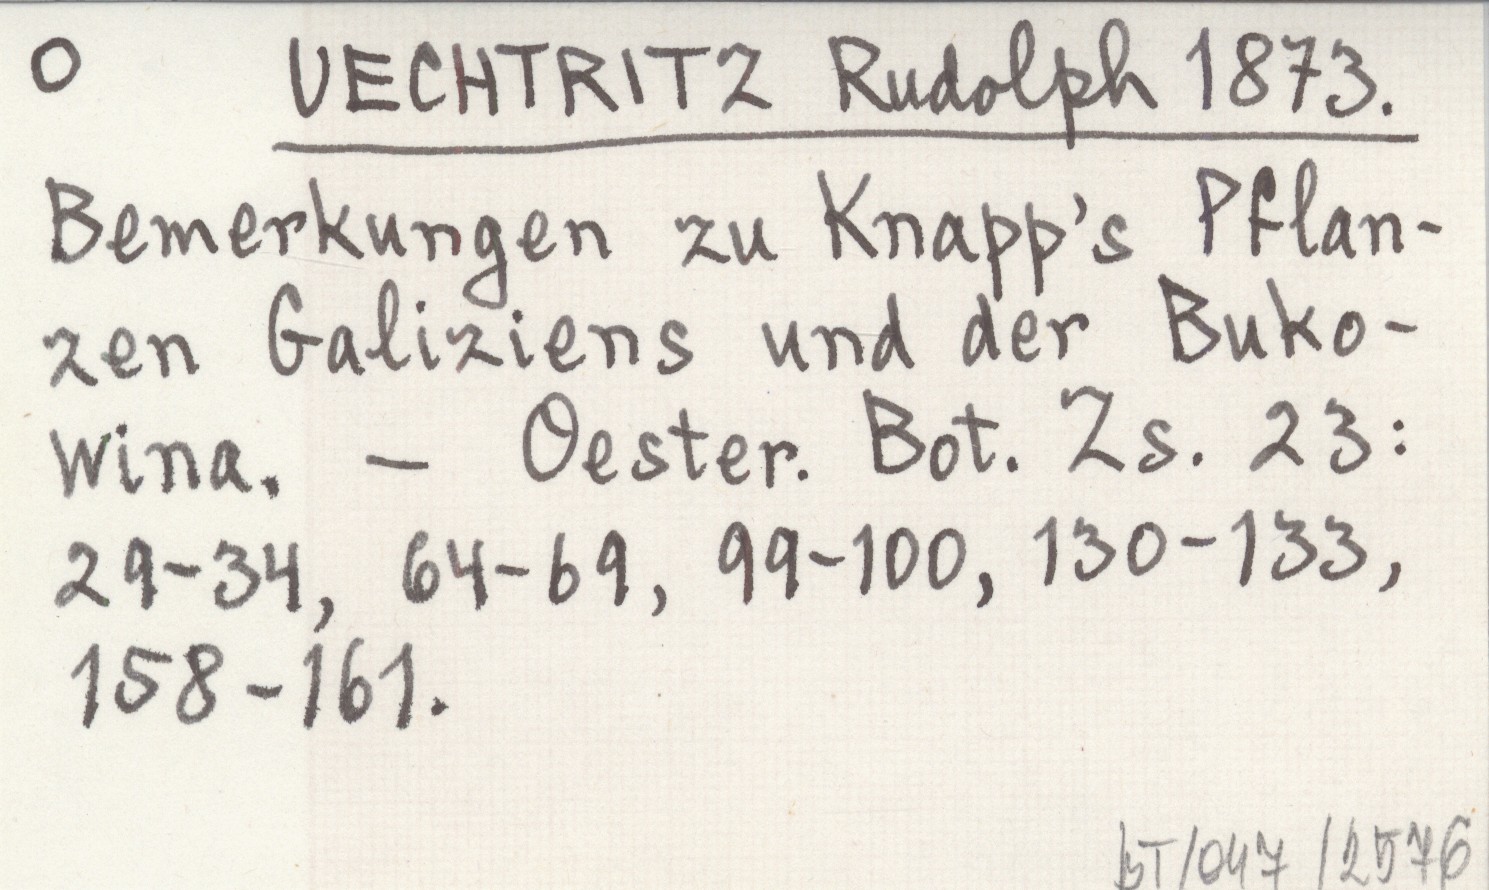 O UECHTRITZ Rudolph 1873.
Bemerkungen zu Knapp's Pflan-
zen Galiziens und der Buko-
wina. – Oester. Bot. Zs. 23:
29-34, 64-69, 99-100, 130-133,
158-161.
BT/047/2576